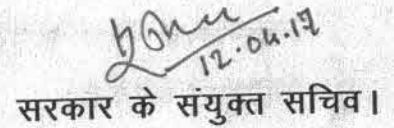 12.04.17
सरकार के संयुक्त सचिव।